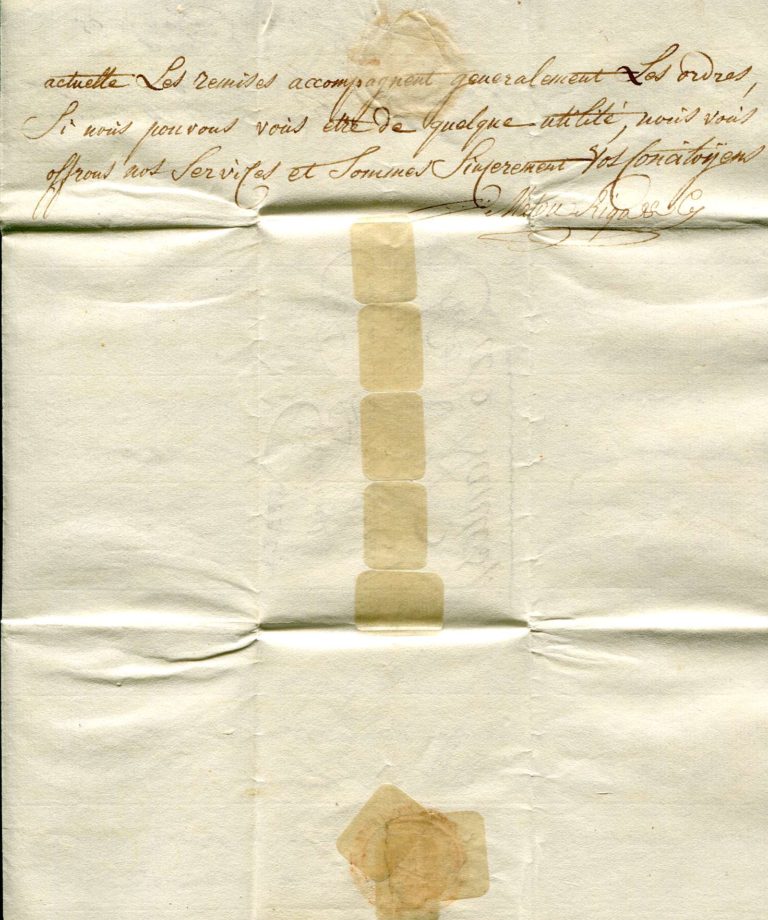 actuelle Les remises accompagnent generalement Les ordres,
Si nous pouvons vous etre de quelque utilité, nous vous
offrons nos Services et Sommes Sincerement Vos Concitoÿens